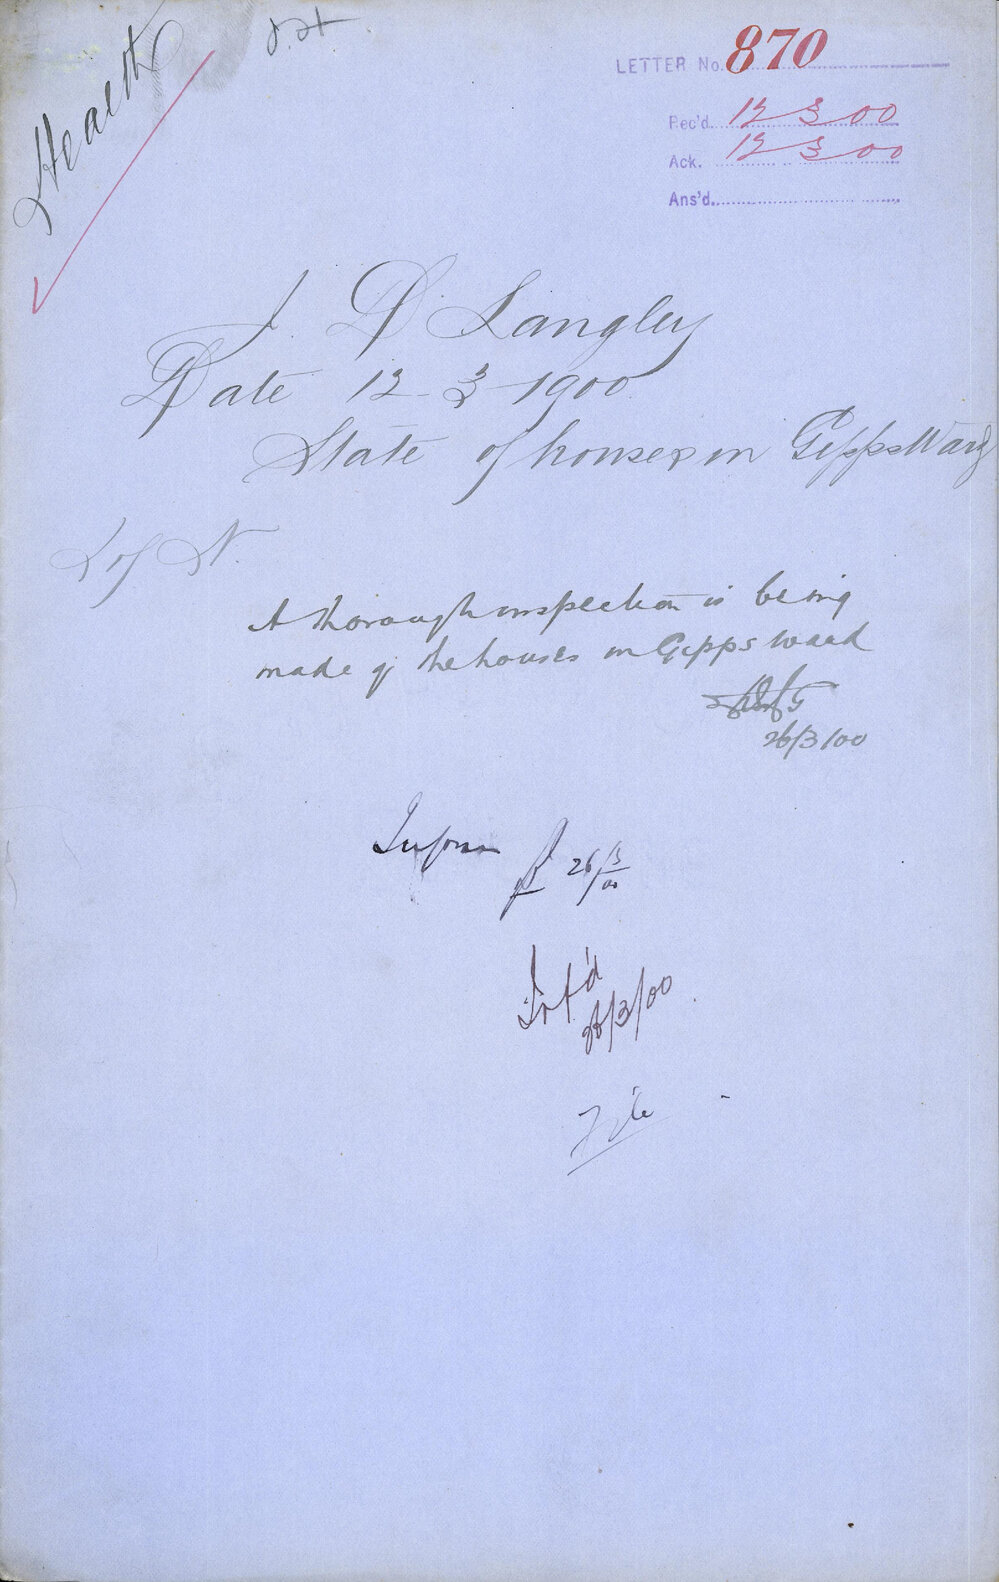 Health
LETTER No. 870
Rec'd. 12 3 00
Ack. 12 3 00
Ans'd.
J. D Langley
Date 12-3-1900
State of houses in Gipps Ward
A thorough inspection is being
made of the houses in Gipps Ward
26/3/00
Inform 26/3/00
Inf'd
26/3/00
File